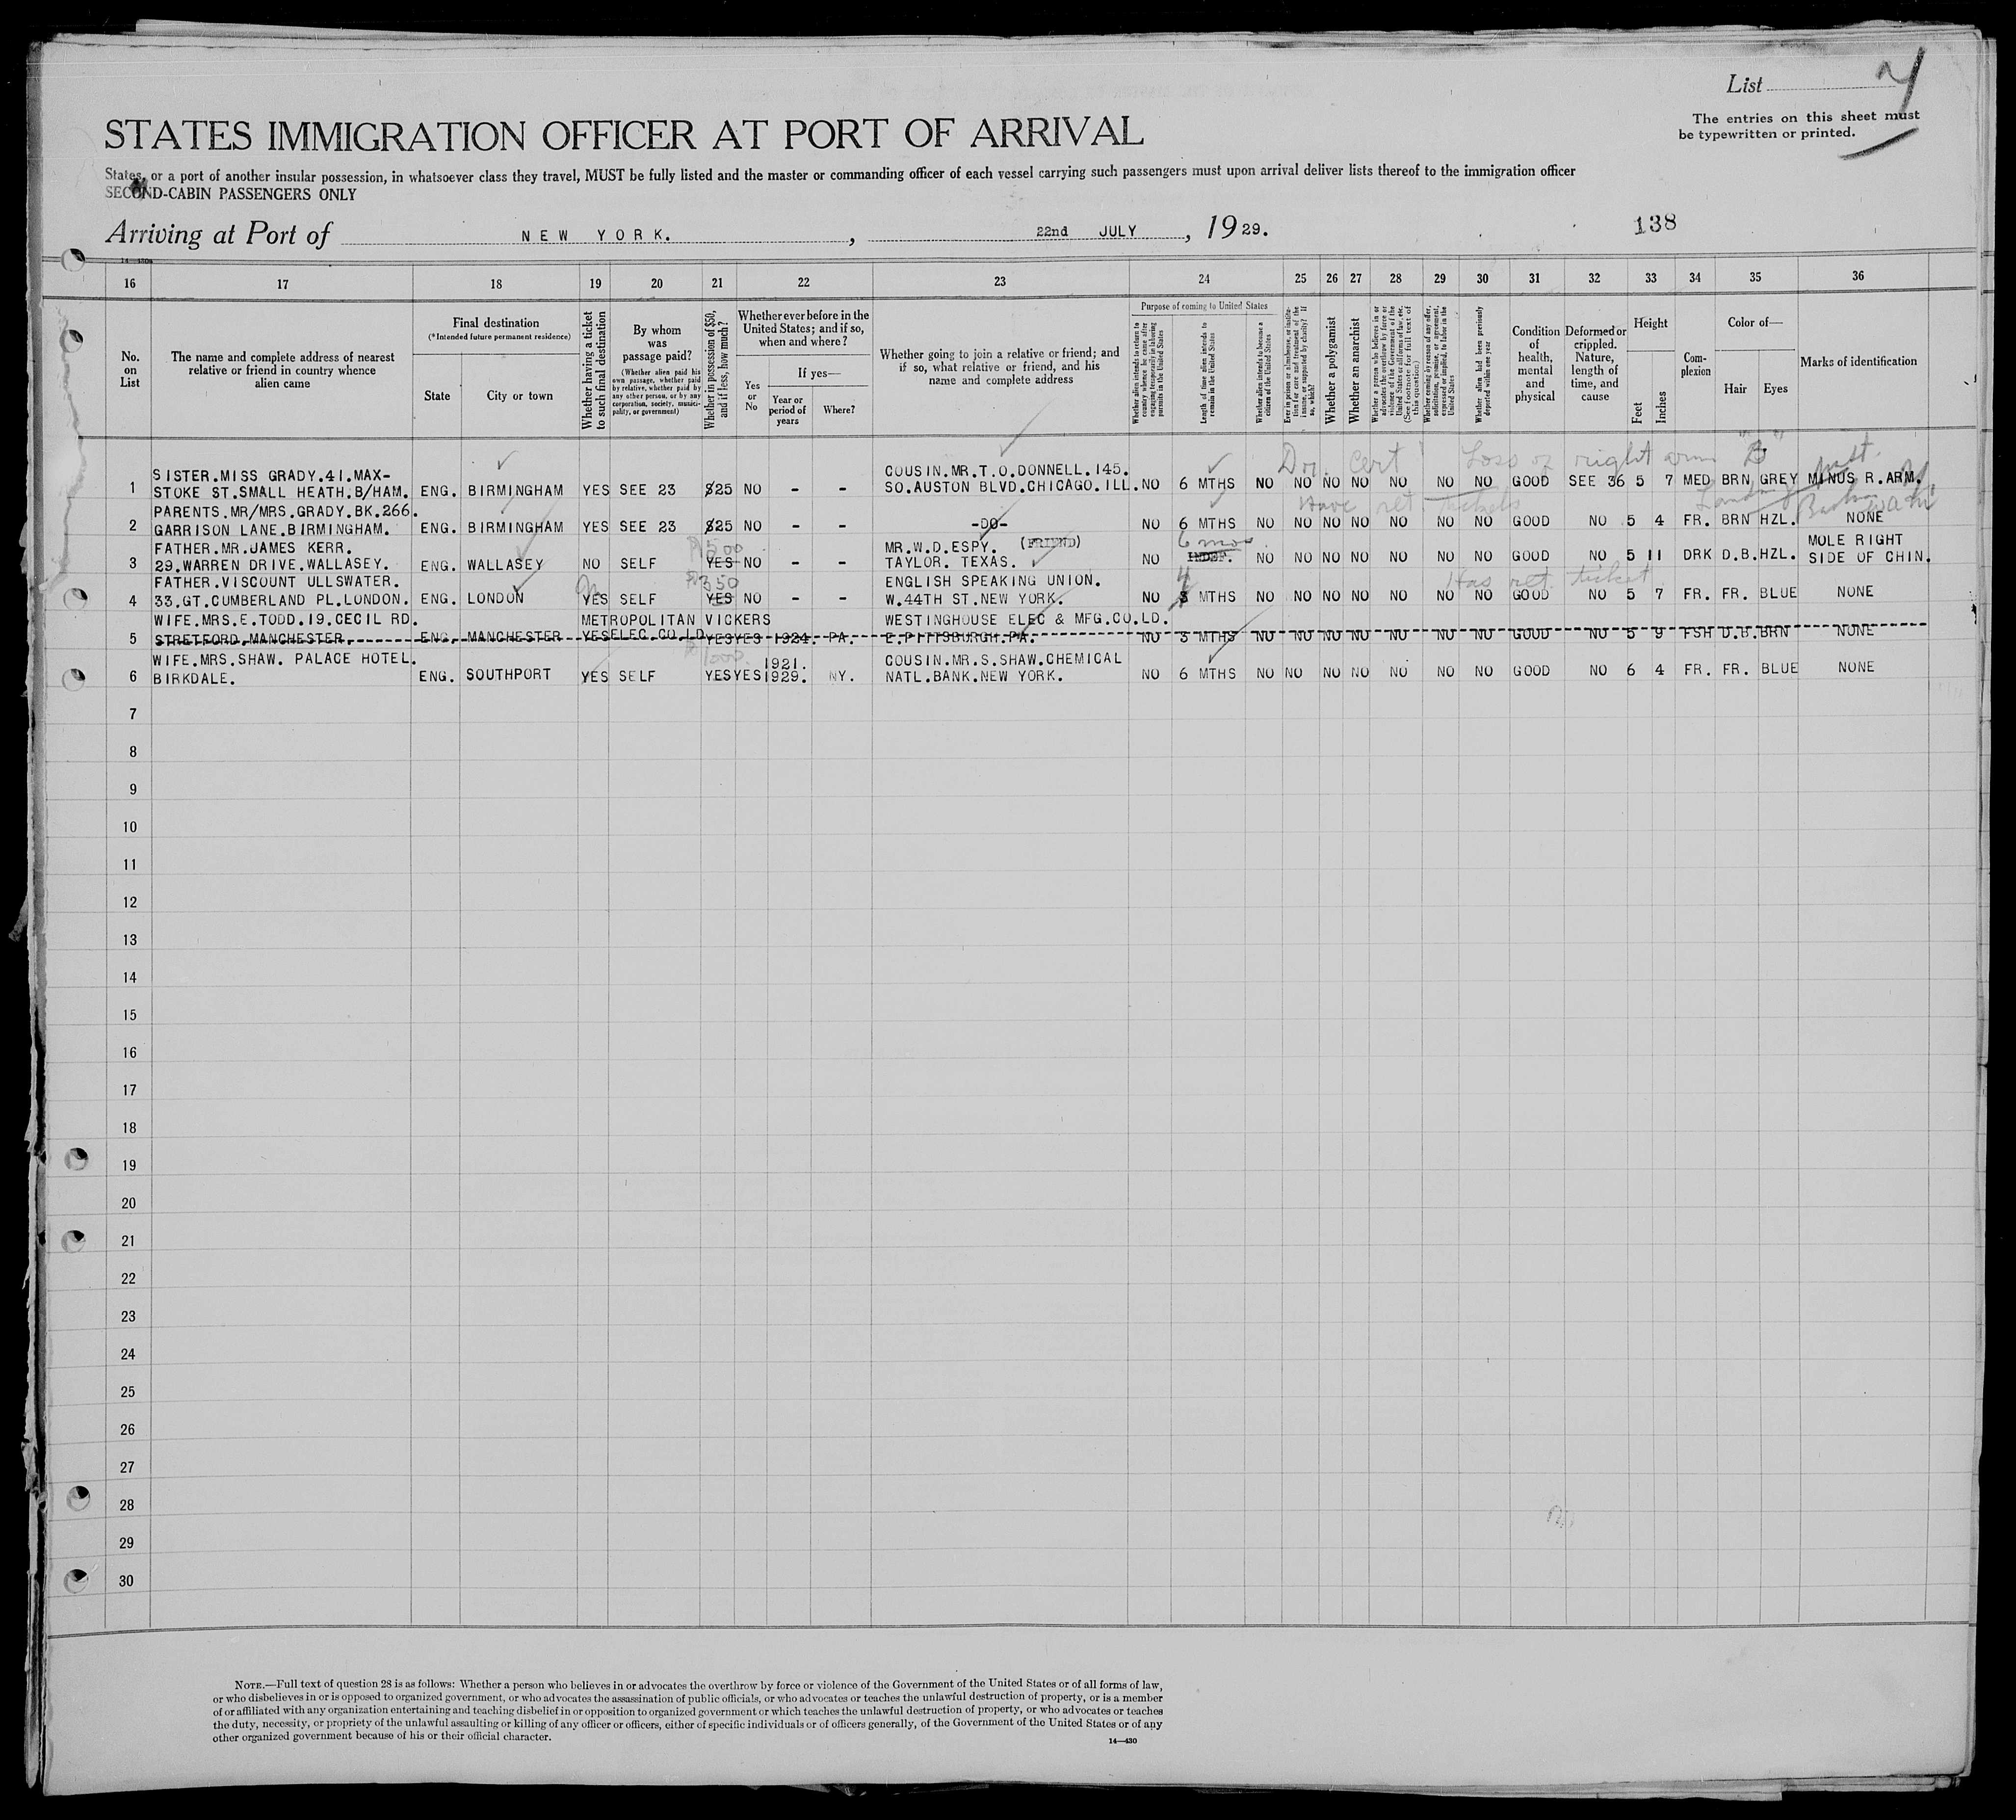 List
The entries on this sheet must
be typewritten or printed.
STATES IMMIGRATION OFFICER AT PORT OF ARRIVAL
States, or a port of another insular possession, in whatsoever class they travel, MUST be fully listed and the master or commanding officer of each vessel carrying such passengers must upon arrival deliver lists thereof to the immigration officer
SECOND-CABIN PASSENGERS ONLY
Arriving at Port of NEW YORK. , 22nd JULY , 1929.
138
16 17 18 19 20 21 22 23 24 25 26 27 28 29 30 31 32 33 34 35 36
No. on List
The name and complete address of nearest
relative or friend in country whence
alien came
Final destination
(*Intended future permanent residence)
State
City or town
Whether having a ticket
to such final destination
By whom
was
passage paid?
(Whether alien paid his
own passage, whether paid
by relative, whether paid by
any other person, or by any
corporation, society, munici-
pality, or government)
Whether in possession of $50,
and if less, how much?
Whether ever before in the
United States; and if so,
when and where?
Yes
or
No
If yes—
Year or
period of
years
Where?
Whether going to join a relative or friend; and
if so, what relative or friend, and his
name and complete address
Purpose of coming to United States
Whether alien intends to return to
country whence he came after
engaging temporarily in laboring
pursuits in the United States
Length of time alien intends to
remain in the United States
Whether alien intends to become a
citizen of the United States
Ever in prison or almshouse, or institu-
tion for care and treatment of the
insane, or supported by charity? If
so, which?
Whether a polygamist
Whether an anarchist
Whether a person who believes in or
advocates the overthrow by force or
violence of the Government of the
United States or all forms of law, etc.
(See footnote for full text of
this question.)
Whether coming by reason of any offer,
solicitation, promise, or agreement,
expressed or implied, to labor in the
United States
Whether alien had been previously
deported within one year
Condition
of
health,
mental
and
physical
Deformed or
crippled.
Nature,
length of
time, and
cause
Height
Feet
Inches
Com-
plexion
Color of—
Hair
Eyes
Marks of identification
Dr. Cert Loss of right arm "B"
SISTER.MISS GRADY.41.MAX- COUSIN.MR.T.O.DONNELL.145.
1 STOKE ST.SMALL HEATH.B/HAM. ENG. BIRMINGHAM YES SEE 23 $25 NO - - SO.AUSTON BLVD.CHICAGO.ILL. NO 6 MTHS NO NO NO NO NO NO NO GOOD SEE 36 5 7 MED BRN GREY MINUS R.ARM.
Have ret. tickets
PARENTS.MR/MRS.GRADY.BK.266.
2 GARRISON LANE.BIRMINGHAM. ENG. BIRMINGHAM YES SEE 23 $25 NO - - -DO- NO 6 MTHS NO NO NO NO NO NO NO GOOD NO 5 4 FR. BRN HZL. NONE
FATHER.MR.JAMES KERR. $500 MR.W.D.ESPY. (FRIEND) 6 mos MOLE RIGHT
3 29.WARREN DRIVE.WALLASEY. ENG. WALLASEY NO SELF YES NO - - TAYLOR. TEXAS. NO INDEF. NO NO NO NO NO NO NO GOOD NO 5 11 DRK D.B. HZL. SIDE OF CHIN.
FATHER.VISCOUNT ULLSWATER. $350 ENGLISH SPEAKING UNION. 4 Has ret. ticket
4 33.GT.CUMBERLAND PL.LONDON. ENG. LONDON YES SELF YES NO - - W.44TH ST.NEW YORK. NO 3 MTHS NO NO NO NO NO NO NO GOOD NO 5 7 FR. FR. BLUE NONE
WIFE.MRS.E.TODD.19.CECIL RD. METROPOLITAN VICKERS WESTINGHOUSE ELEC & MFG.CO.LD.
5 STRETFORD.MANCHESTER. ENG. MANCHESTER YES ELEC.CO.LD YES YES 1924. PA. E.PITTSBURGH.PA. NO 3 MTHS NO NO NO NO NO NO NO GOOD NO 5 9 FSH D.B. BRN NONE
WIFE.MRS.SHAW. PALACE HOTEL. $1000. 1921. COUSIN.MR.S.SHAW.CHEMICAL
6 BIRKDALE. ENG. SOUTHPORT YES SELF YES YES 1929. NY. NATL.BANK.NEW YORK. NO 6 MTHS NO NO NO NO NO NO NO GOOD NO 6 4 FR. FR. BLUE NONE
7
8
9
10
11
12
13
14
15
16
17
18
19
20
21
22
23
24
25
26
27
28
29
30
NOTE.—Full text of question 28 is as follows: Whether a person who believes in or advocates the overthrow by force or violence of the Government of the United States or of all forms of law,
or who disbelieves in or is opposed to organized government, or who advocates the assassination of public officials, or who advocates or teaches the unlawful destruction of property, or is a member
of or affiliated with any organization entertaining and teaching disbelief in or opposition to organized government or which teaches the unlawful destruction of property, or who advocates or teaches
the duty, necessity, or propriety of the unlawful assaulting or killing of any officer or officers, either of specific individuals or of officers generally, of the Government of the United States or of any
other organized government because of his or their official character.
14—430